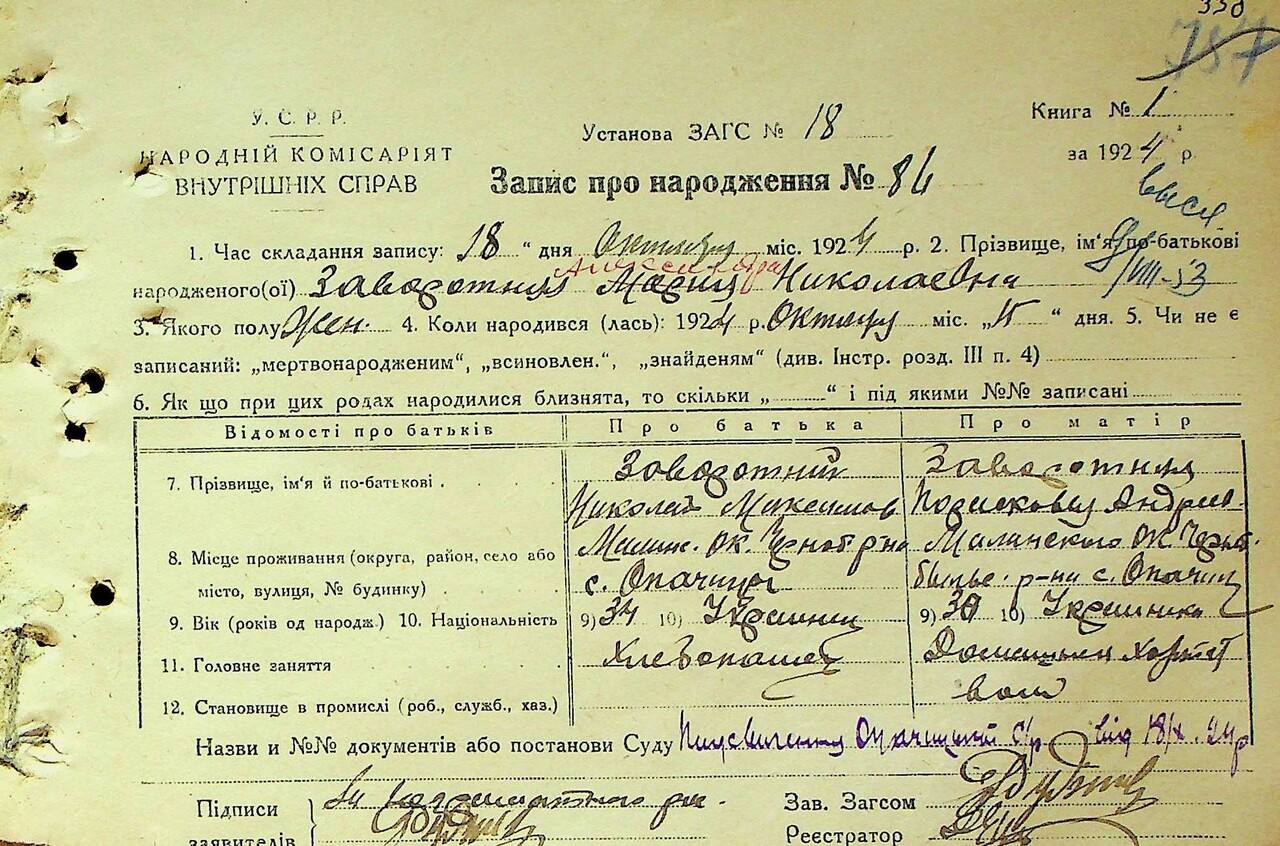 338
757
У. С. Р. Р.
НАРОДНІЙ КОМІСАРІЯТ
ВНУТРІШНІХ СПРАВ
Установа ЗАГС № 18
Книга № 1
за 1924 р.
Запис про народження № 86
1. Час складання запису: 18 " дня Октября міс. 1924 р. 2. Прізвище, ім'я по-батькові
VIII-53
Александра
народженого(ої) Заворотня Мария Николаевна
3. Якого полу Жен. 4. Коли народився (лась): 1924 р. Октября міс. „ 15 " дня. 5. Чи не є
записаний: „мертвонародженим", „всиновлен.", „знайденям" (див. Інстр. розд. III п. 4)
6. Як що при цих родах народилися близнята, то скільки „ " і під якими №№ записані
Відомості про батьків Про батька Про матір
7. Прізвище, ім'я й по-батькові . Заворотний Заворотняя
Николай Максимов
8. Місце проживання (округа, район, село або
місто, вулиця, № будинку) с. Опачичи р-на с. Опачич
9. Вік (років од народж.) 10. Національність 9) 34 10) Украинец 9) 30 10) Украинка
11. Головне заняття Хлебопашец
12. Становище в промислі (роб., служб., хаз.)
Назви и №№ документів або постанови Суду с/р від 18/X. 24 р
Підписи
заявителів
Зав. Загсом
Реєстратор